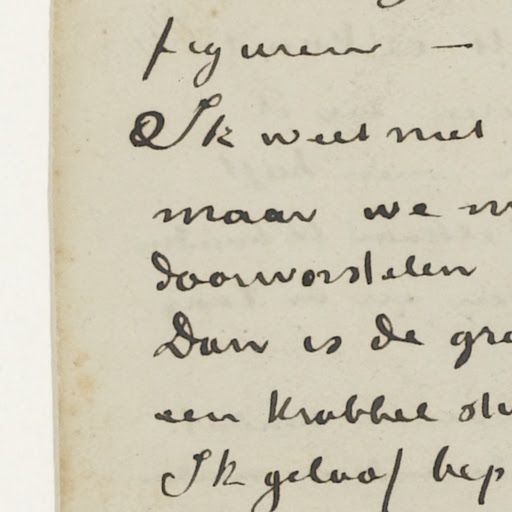 figuren —
Ik weet niet
maar we m
doorworstelen
Dan is de gro
een krabbel stu
Ik geloof bep